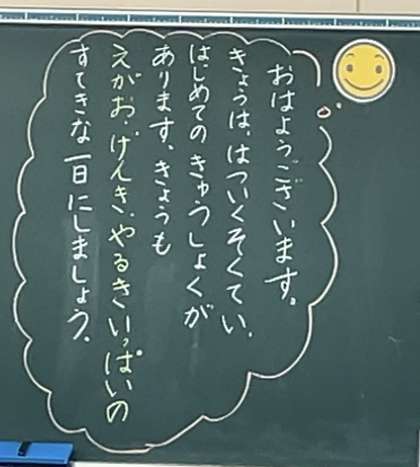 おはようございます。
きょうは、はついくそくてい、
はじめてのきゅうしょくが
あります。きょうも
えがお、げんき、やるきいっぱいの
すてきな一日にしましょう。